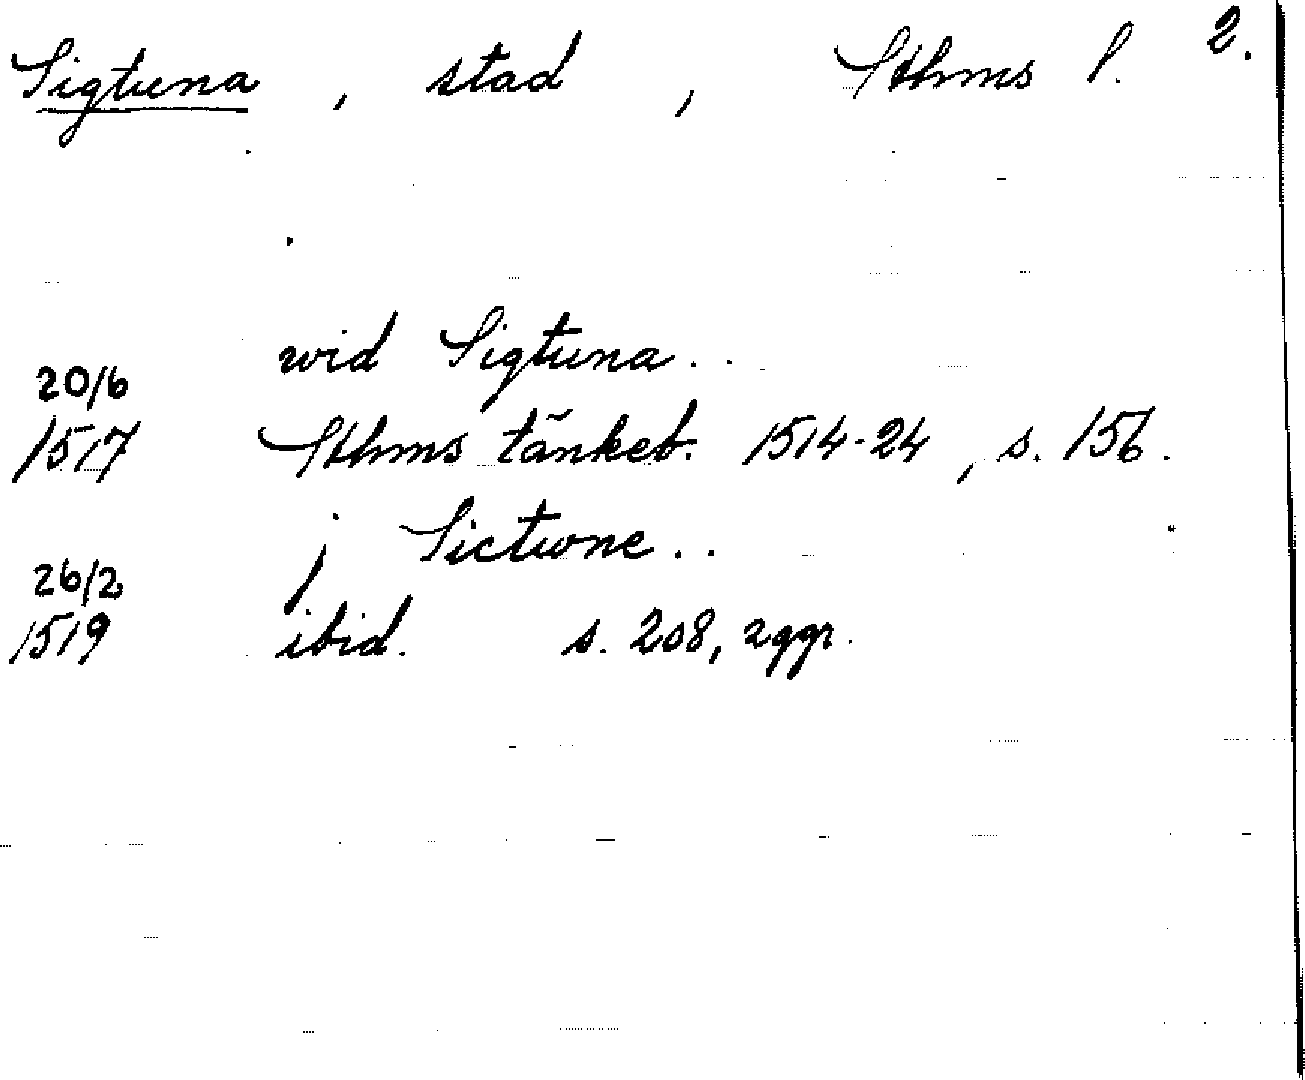 Sigtuna, stad, Sthms l. 2.
wid Sigtuna..
20/6
1517 Sthms tänkeb. 1514-24, s. 156.
j Sictwne..
26/2
1519 ibid. s. 208, 2 ggr.